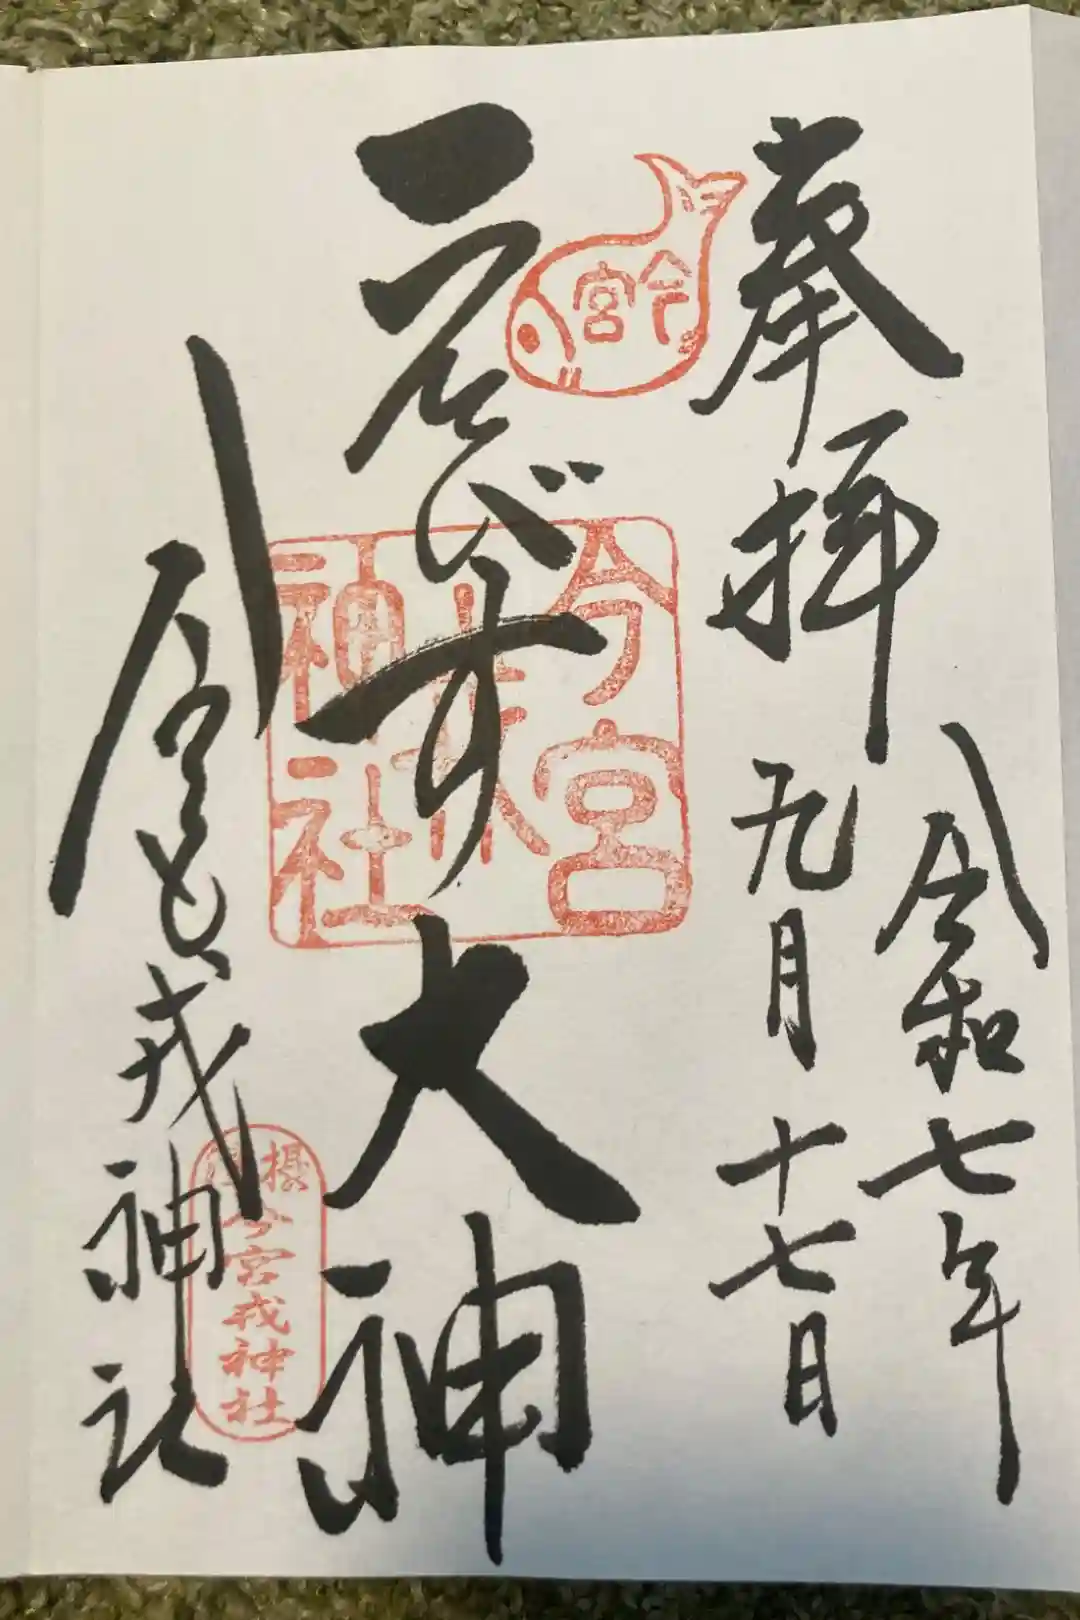 奉拝
令和七年
九月十七日
今宮
ゑびす大神
今宮
戎
神社
今宮戎神社
摂
今宮戎神社